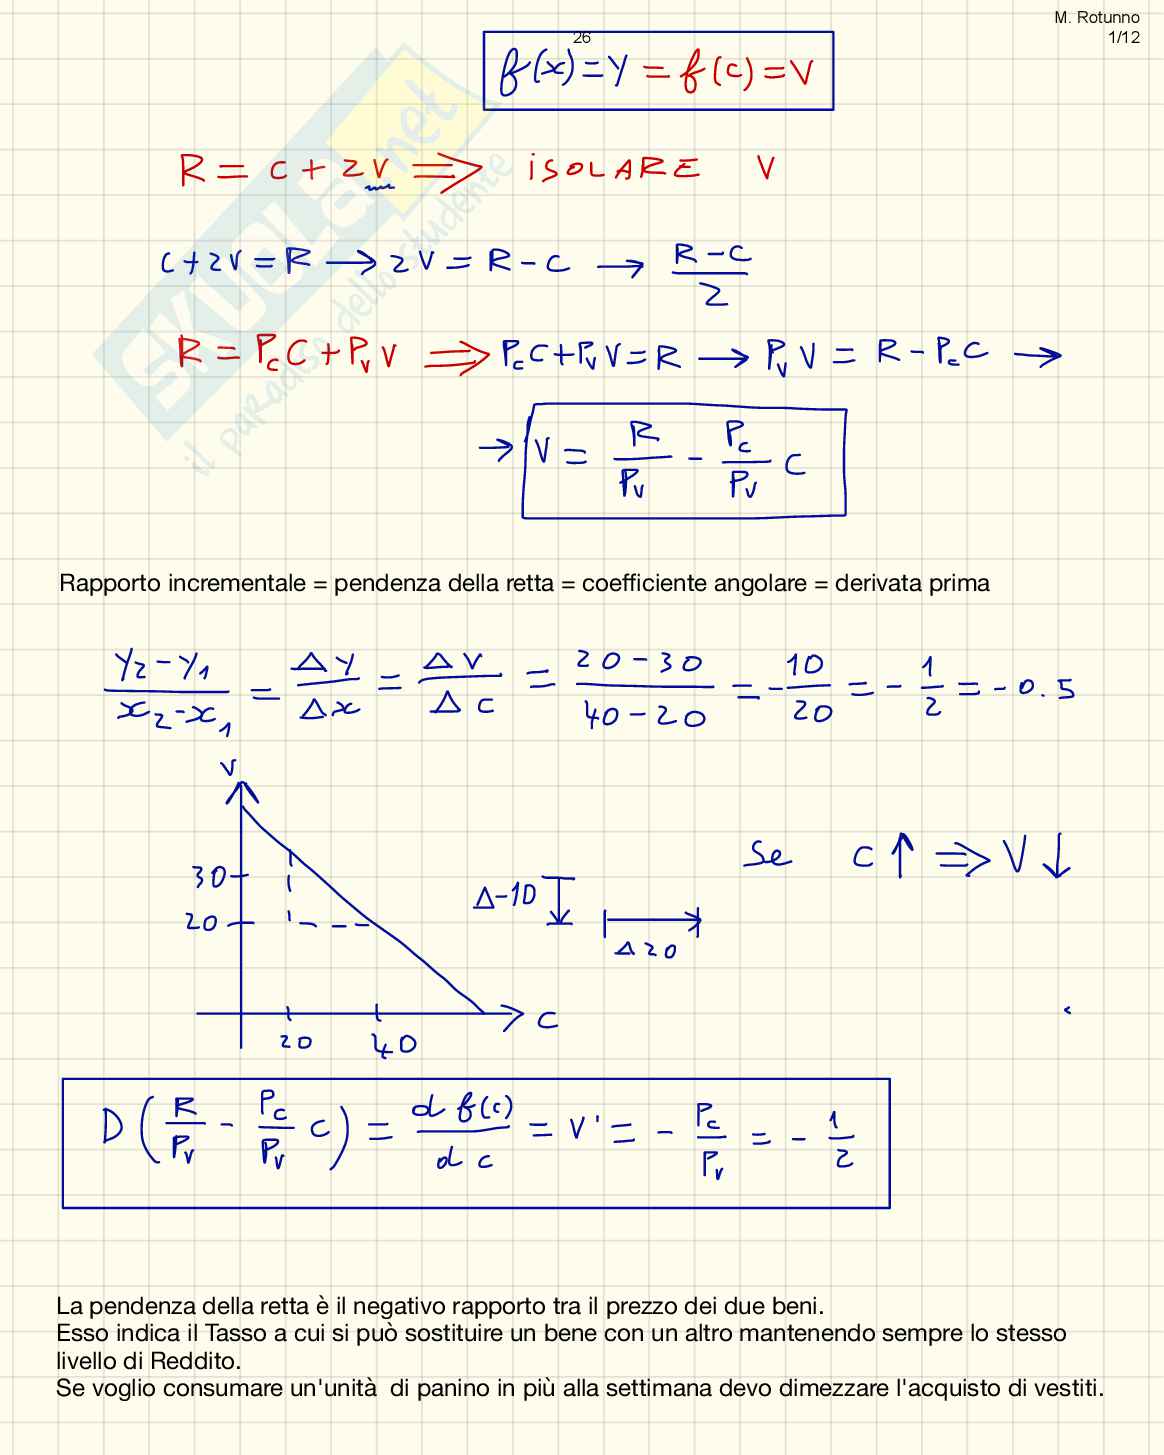 M. Rotunno
26
1/12
f(x) = y = f(c) = V
R = C + 2V ⟹ ISOLARE V
C + 2V = R → 2V = R - C → (R - C)/2
R = PcC + PvV ⟹ PcC + PvV = R → PvV = R - PcC →
→ V = R/Pv - Pc/Pv C
Rapporto incrementale = pendenza della retta = coefficiente angolare = derivata prima
(y2 - y1)/(x2 - x1) = Δy/Δx = ΔV/ΔC = (20 - 30)/(40 - 20) = -10/20 = -1/2 = -0.5
V
Se C↑ ⟹ V↓
30
Δ-10
20
Δ20
C
20 40
D(R/Pv - Pc/Pv C) = d f(c)/d c = V' = - Pc/Pv = - 1/2
La pendenza della retta è il negativo rapporto tra il prezzo dei due beni.
Esso indica il Tasso a cui si può sostituire un bene con un altro mantenendo sempre lo stesso
livello di Reddito.
Se voglio consumare un'unità di panino in più alla settimana devo dimezzare l'acquisto di vestiti.
SKUOLA.net
il paradiso dello studente